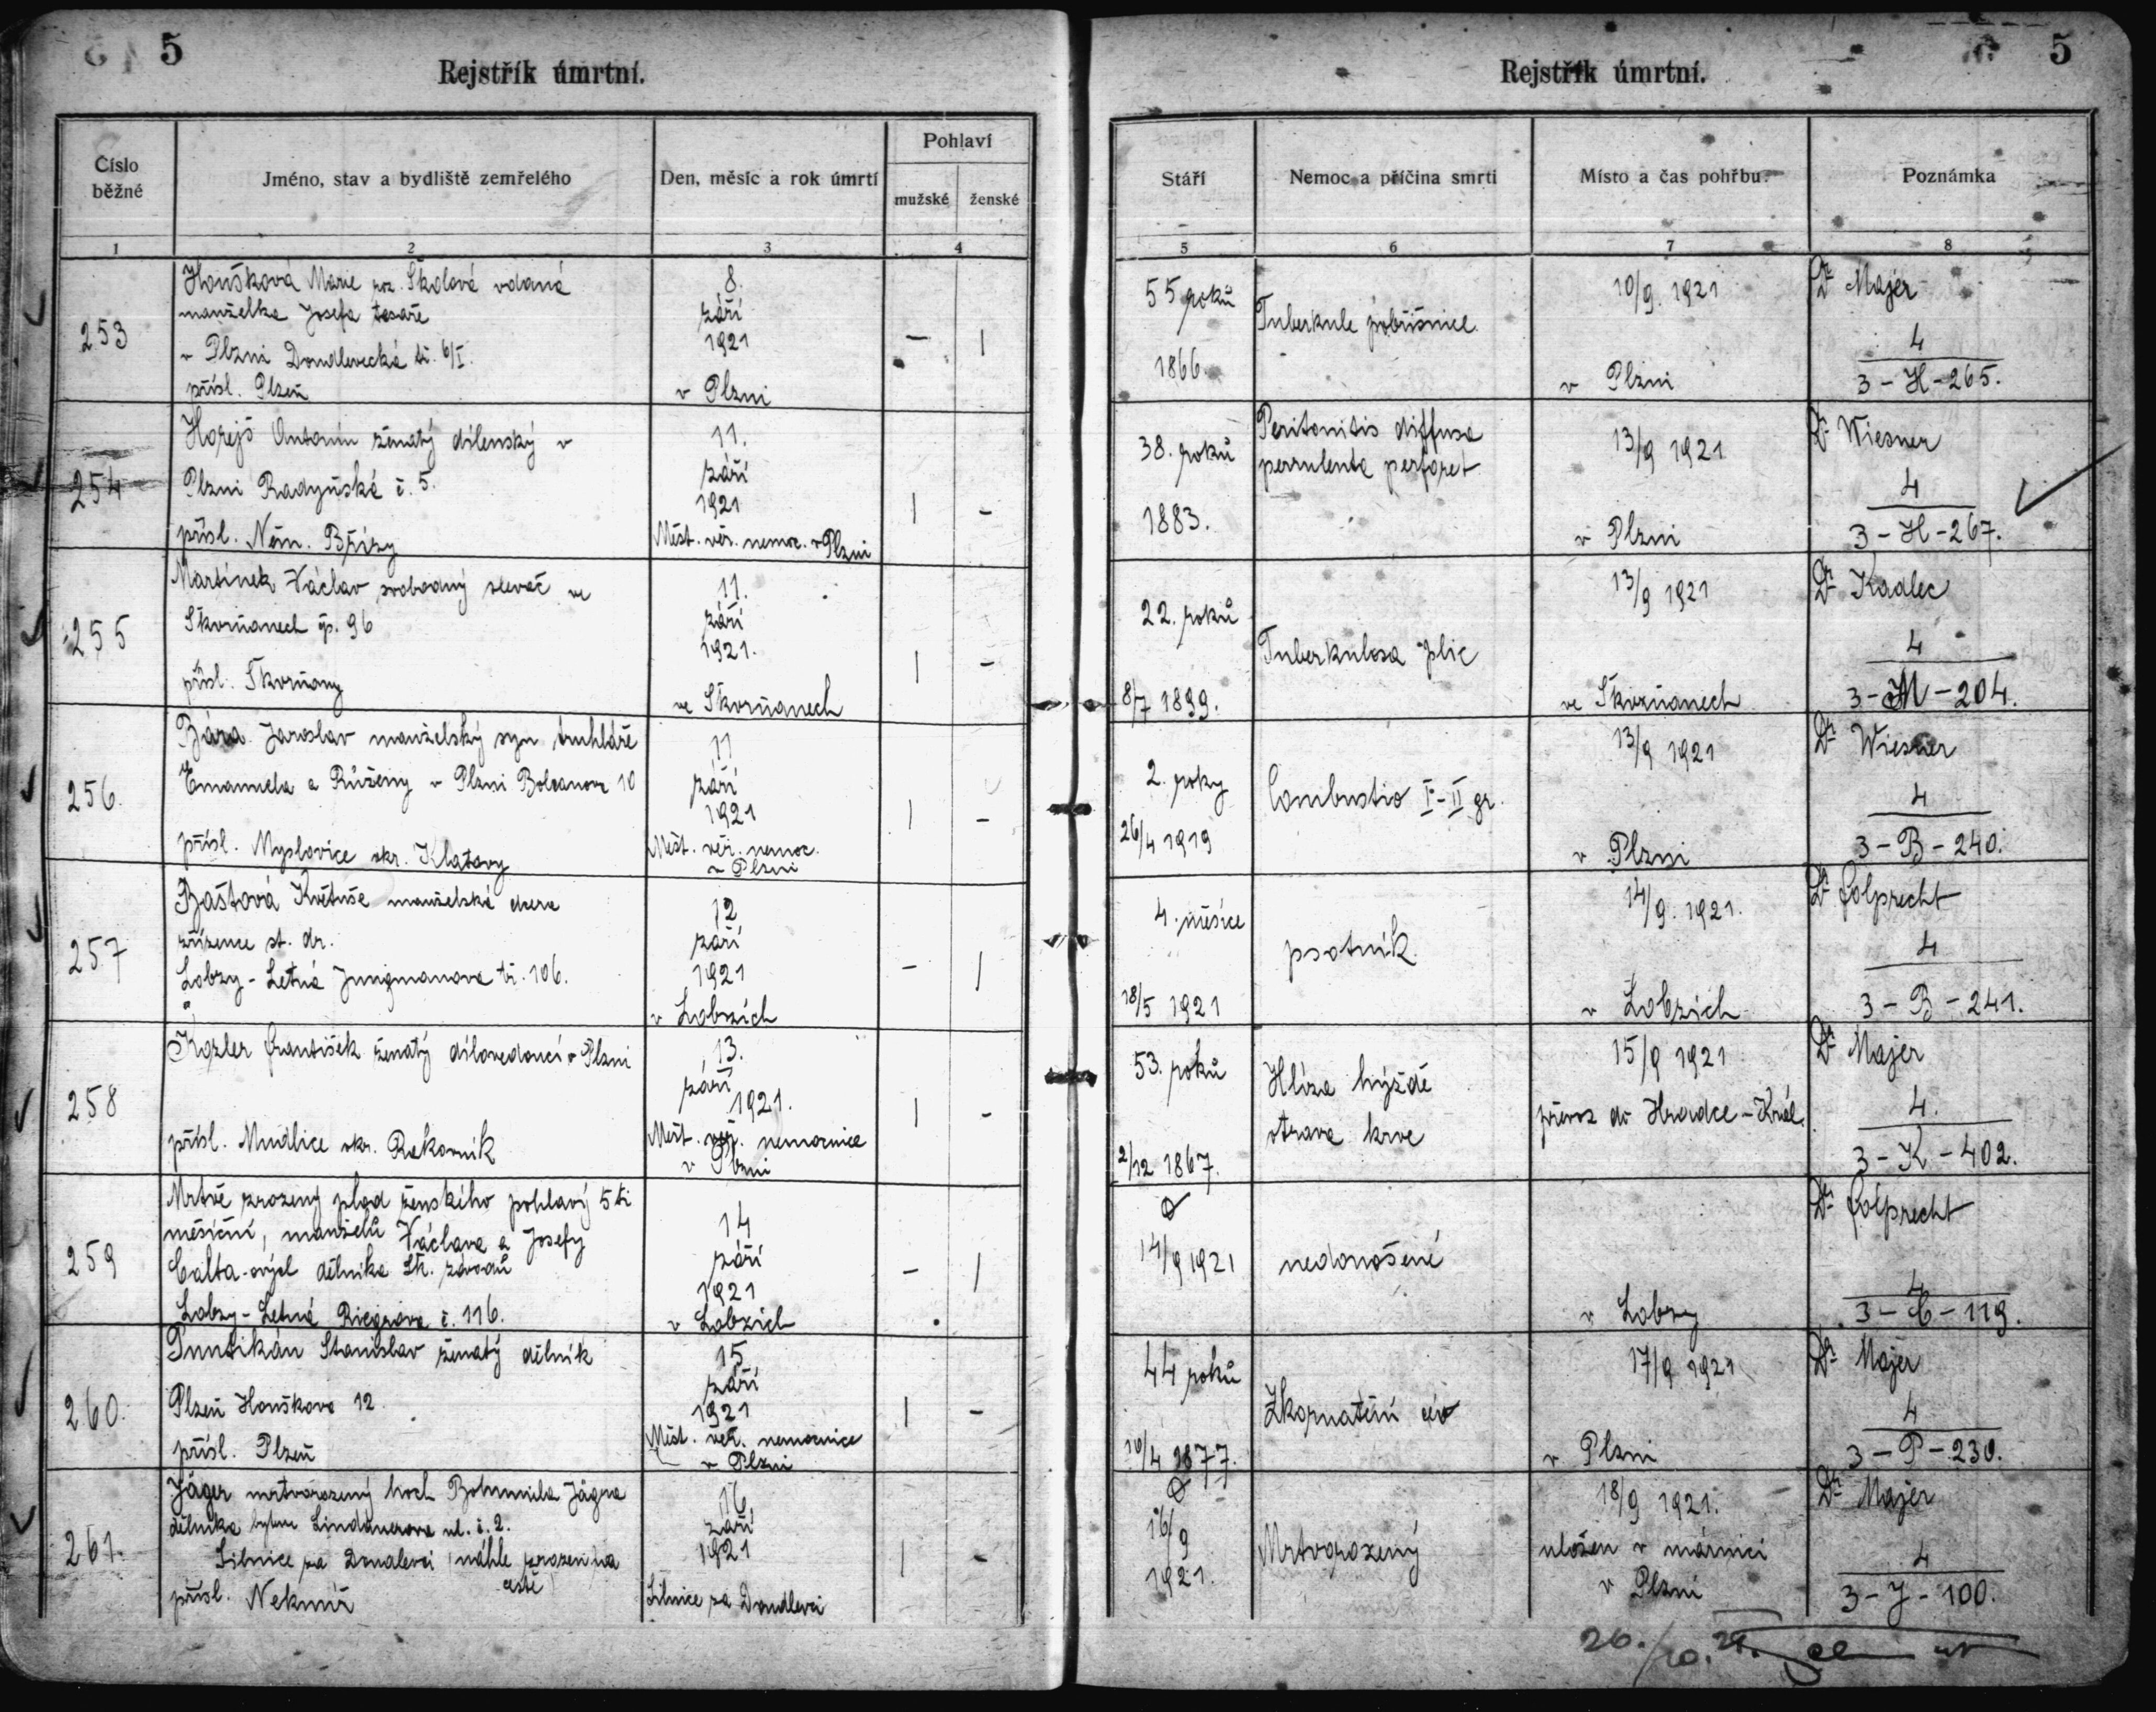 5
Rejstřík úmrtní.
Číslo běžné
Jméno, stav a bydliště zemřelého
Den, měsíc a rok úmrtí
Pohlaví
mužské
ženské
1
2
3
4
253
Houšková Marie roz. Školová vdaná
manželka Josefa tesaře
v Plzni Doudlevecká tř. 6/I.
přísl. Plzeň
8.
září
1921
v Plzni
–
1
254
Horejš Antonín ženatý dílenský v
Plzni Radyňská č. 5.
přísl. Něm. Břízy
11.
září
1921
Měst. věř. nemoc. v Plzni
1
–
255
Martínek Václav svobodný slevač ve
Skvrňanech čp. 96
přísl. Skvrňany
11.
září
1921.
ve Skvrňanech
1
–
256.
Bára Jaroslav manželský syn truhláře
Emanuela a Růženy v Plzni Bolzanova 10
přísl. Myslovice okr. Klatovy
11
září
1921
Měst. veř. nemoc.
v Plzni
1
–
257
Baštová Květuše manželská dcera
zřízence st. dr.
Lobzy - Letná Jungmanova tř. 106.
12
září
1921
v Lobzích
–
1
258
Kozler František ženatý dílovedoucí v Plzni
přísl. Mudlice okr. Rakovník
13.
září
1921.
Měst. veř. nemocnice
v Plzni
1
–
259
Mrtvě zrozený plod ženského pohlavý 5 ti
měsíční, manželů Václava a Josefy
Calta dělníka Šk. závodů
Lobzy - Letná Riegrova č. 116.
14
září
1921
v Lobzích
–
1
260.
Puntikán Stanislav ženatý dělník
Plzeň Houškova 12
přísl. Plzeň
15
září
1921
Měst. veř. nemocnice
v Plzni
1
–
261.
Jäger mrtvorozený hoch Bohumila Jägra
dělníka bytem Lindauerova ul. č. 2.
Silnice za Doudlevci (náhle zrozen na
cestě)
přísl. Nekmíř
16
září
1921
Silnice za Doudlevci
1
–
5
Rejstřík úmrtní.
Stáří
Nemoc a příčina smrti
Místo a čas pohřbu
Poznámka
5
6
7
8
55 roků
1866.
Tuberkule pobřišnice
10/9. 1921
v Plzni
Dr Majer
4
3 - H - 265.
38. roků
1883.
Peritonitis diffusa
perrulenta perforet
13/9 1921
v Plzni
Dr Wiesner
4
3 - H - 267.
22. roků
8/7 1899.
Tuberkulosa plic
13/9 1921
ve Skvrňanech
Dr Kadlec
4
3 - M - 204.
2. roky
26/4 1919
Combustio I-II gr.
13/9 1921
v Plzni
Dr Wiesner
4
3 - B - 240.
4. měsíce
18/5 1921
psotník
14/9. 1921.
v Lobzích
Dr Folprecht
4
3 - B - 241.
53. roků
2/12 1867.
Hlíza hýždě
otrava krve
15/9 1921
převoz do Hradce - Král.
Dr Majer
4.
3 - K - 402.
14/9 1921
nedonošené
v Lobzy
Dr Folprecht
4
3 - C - 119.
44 roků
10/4 1877.
Zkornatění cév
17/9 1921
v Plzni
Dr Majer
4
3 - P - 230.
16/9
1921.
Mrtvorozený
18/9 1921.
uložen v márnici
v Plzni
Dr Majer
4
3 - J - 100.
26./10.